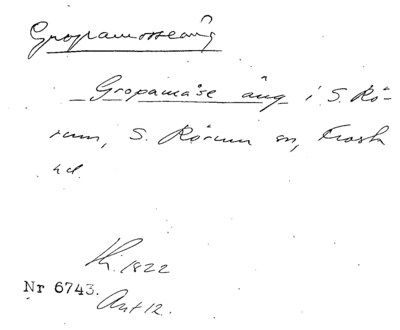 Gropamosseäng
Gropamåse äng i S. Rö-
rum, S. Rörum sn, Frosta
hd.
Lk. 1822
Nr 6743.
Akt 12.